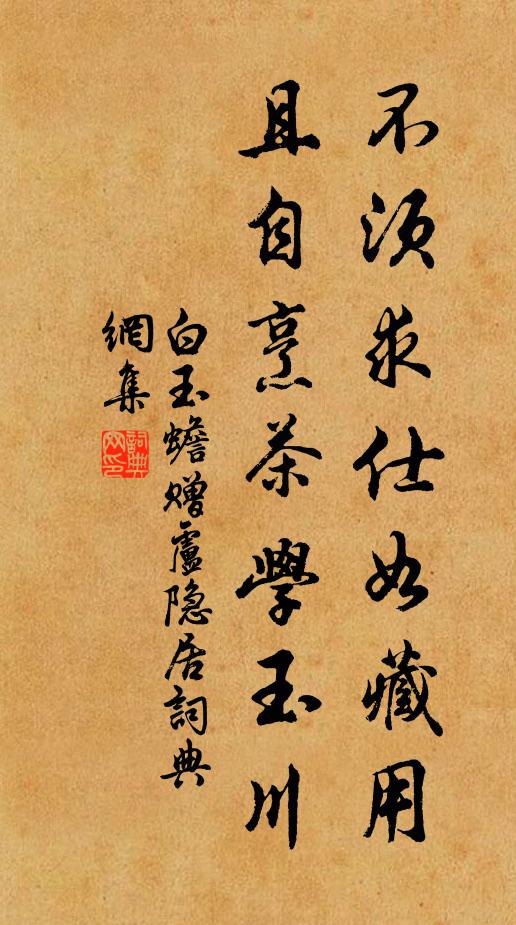 不須求仕如藏用
且自烹茶學玉川
白玉蟾贈盧隐居詞典
網集
詞典網印